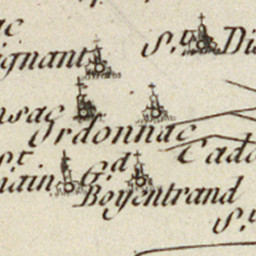 ac
ignant
S.t Di
nsac
Ordonnac
Cado
St
main
G.d
Boyentrand
S.t